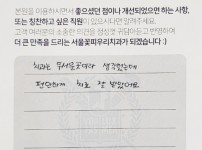 본원을 이용하시면서 좋으셨던 점이나 개선되었으면 하는 사항,
또는 칭찬하고 싶은 직원이 있으시다면 알려주세요.
고객 여러분의 소중한 의견을 정성껏 귀담아듣고 반영하여
더 큰 만족을 드리는 서울꽃피우리치과가 되겠습니다 :)
치과는 무서운곳이라 생각했는데
편안하게 치료 잘 받았어요